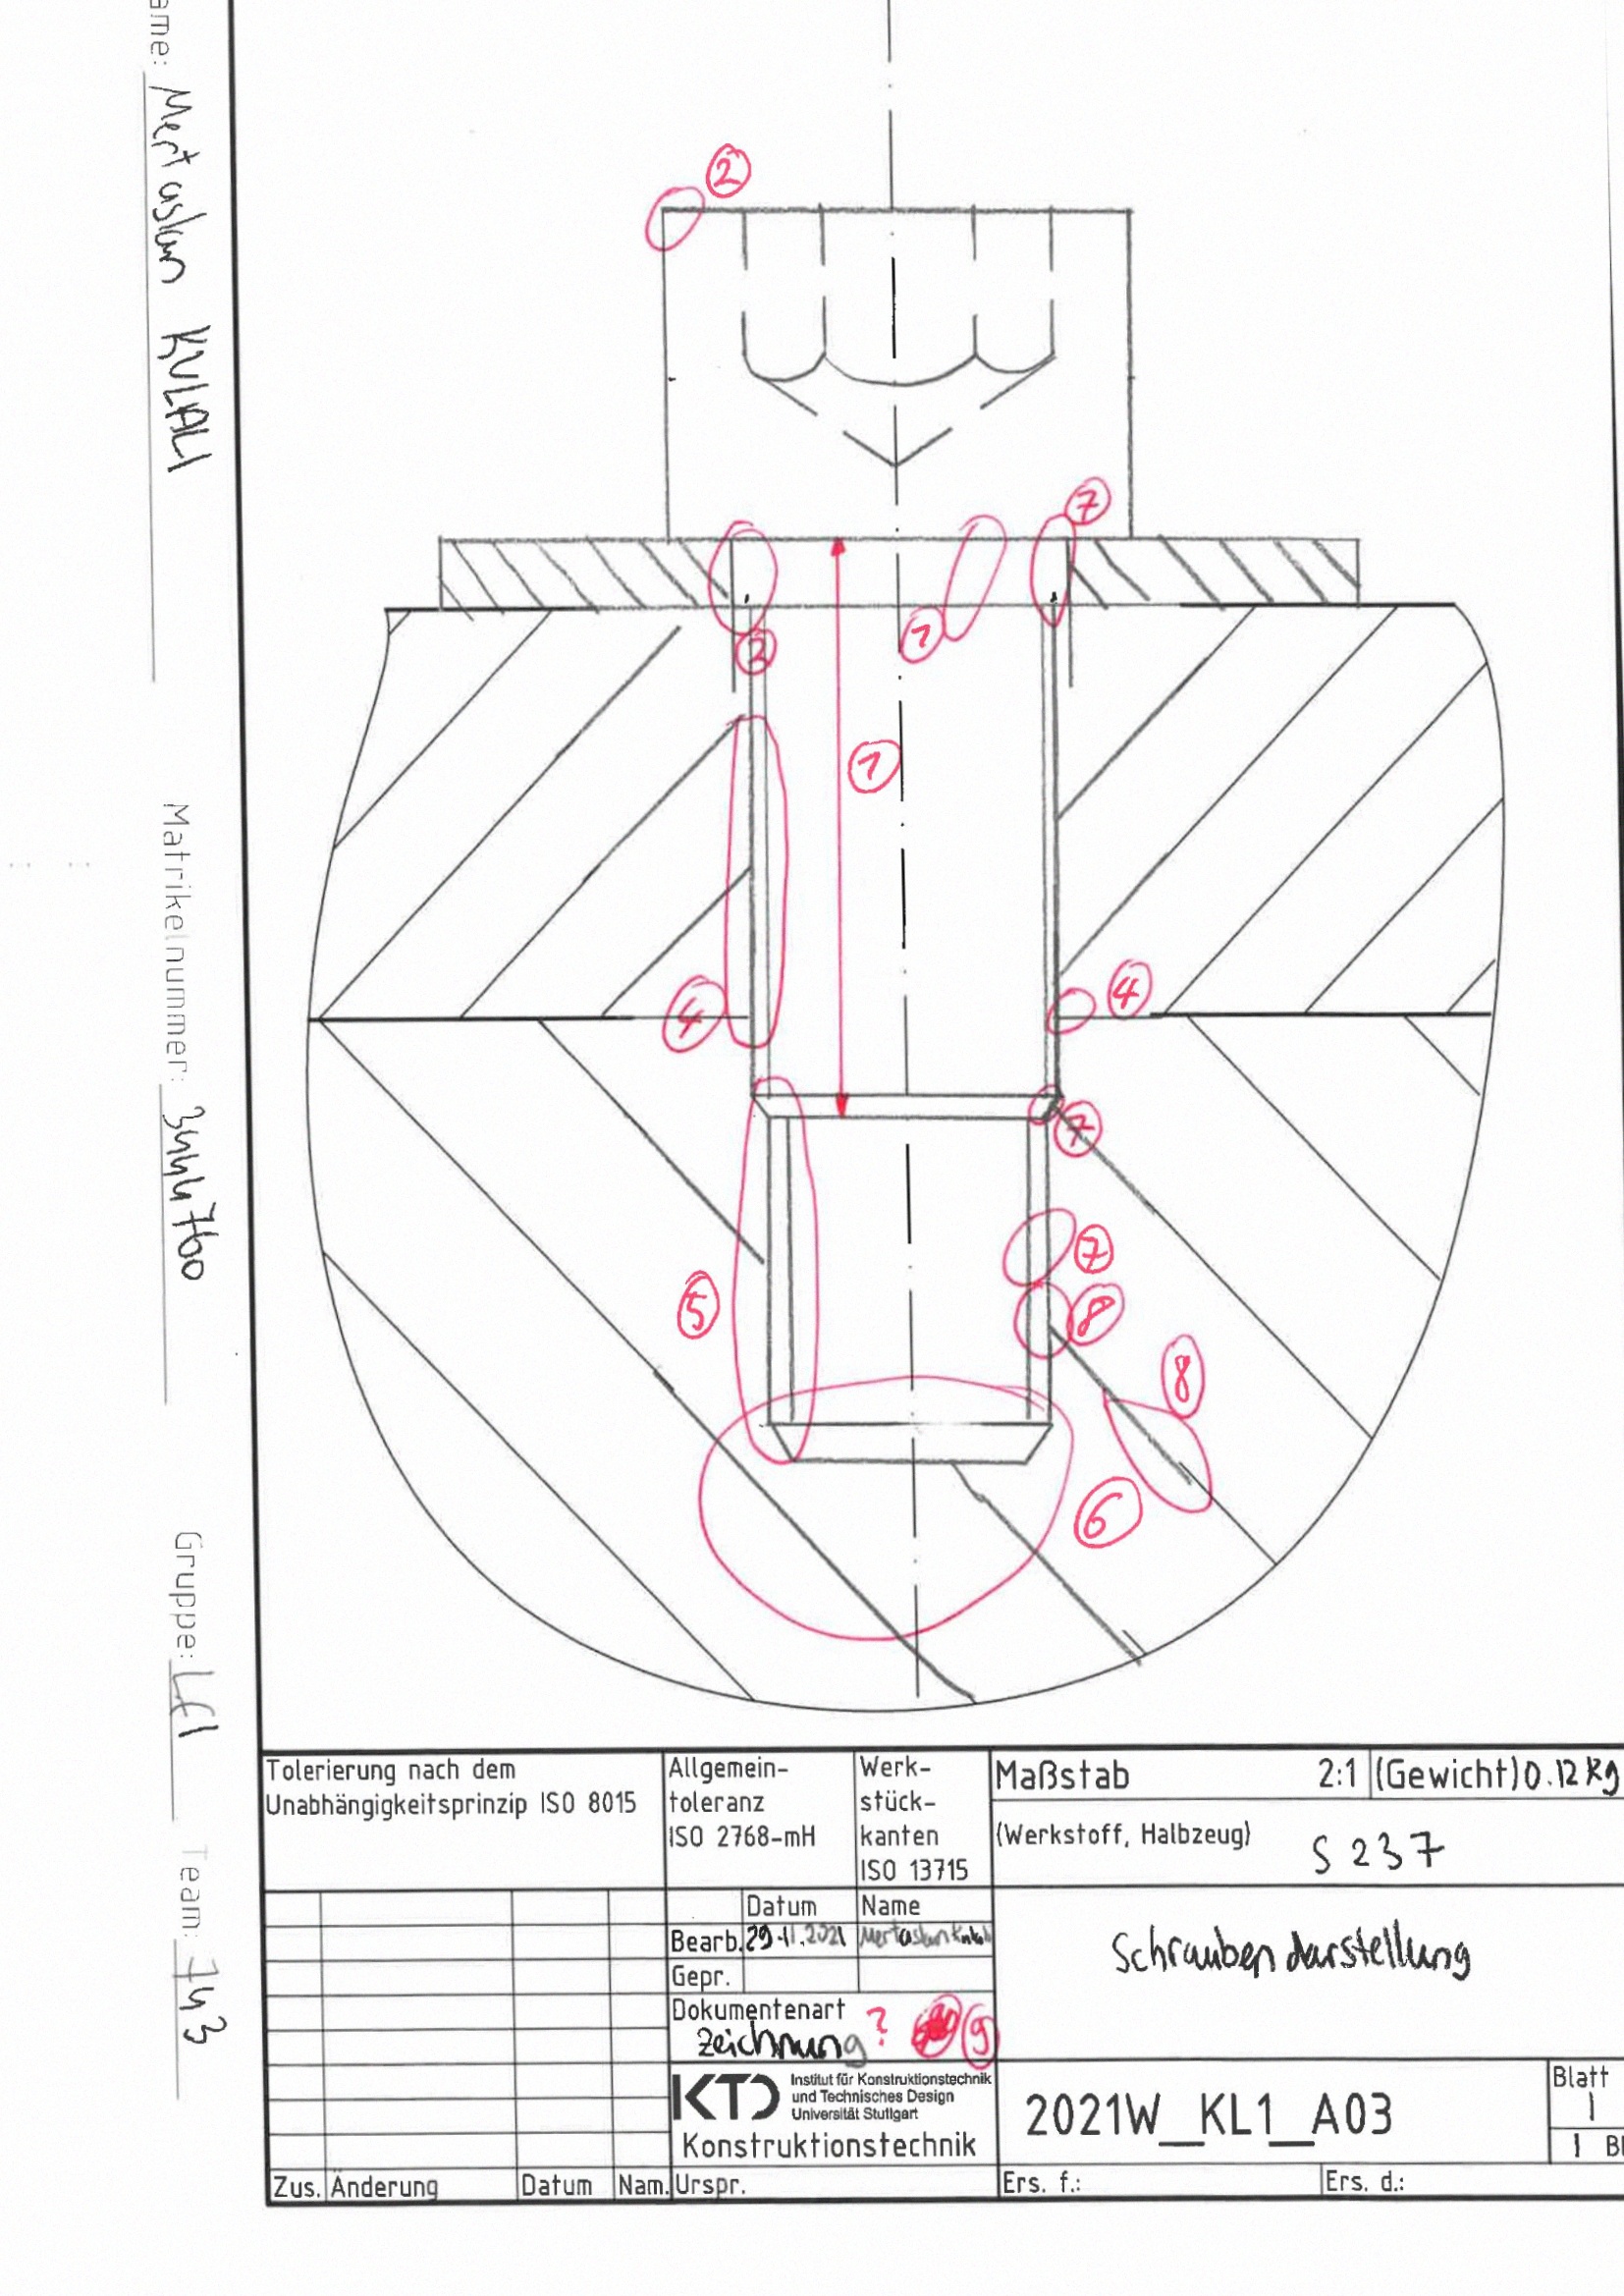 ame: Mertaslan KULALI
Matrikelnummer: 3444760
Gruppe: LG1
Team: 743
2
7
3
1
1
4
4
7
7
8
5
8
6
Tolerierung nach dem
Unabhängigkeitsprinzip ISO 8015
Allgemein-
toleranz
ISO 2768-mH
Werk-
stück-
kanten
ISO 13715
Maßstab 2:1 (Gewicht) 0.12 kg
(Werkstoff, Halbzeug) S 237
Datum Name
Bearb. 29.11.2021 Mertaslan Kulali
Gepr.
Schraubendarstellung
Dokumentenart
Zeichnung ? 9
KTD Institut für Konstruktionstechnik
und Technisches Design
Universität Stuttgart
Konstruktionstechnik
2021W_KL1_A03
Blatt
1
1 Bl
Zus. Änderung Datum Nam. Urspr. Ers. f.: Ers. d.: